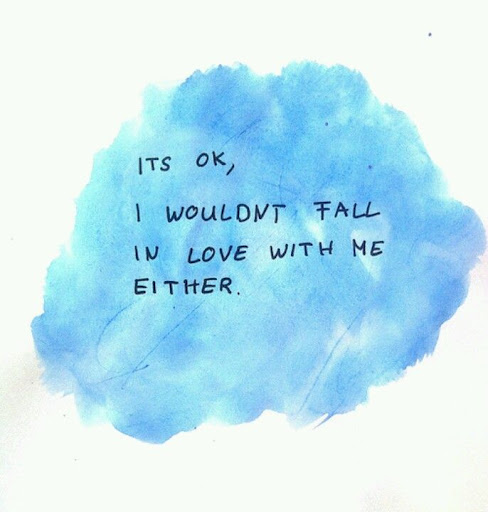 ITS OK,
I WOULDNT FALL
IN LOVE WITH ME
EITHER.